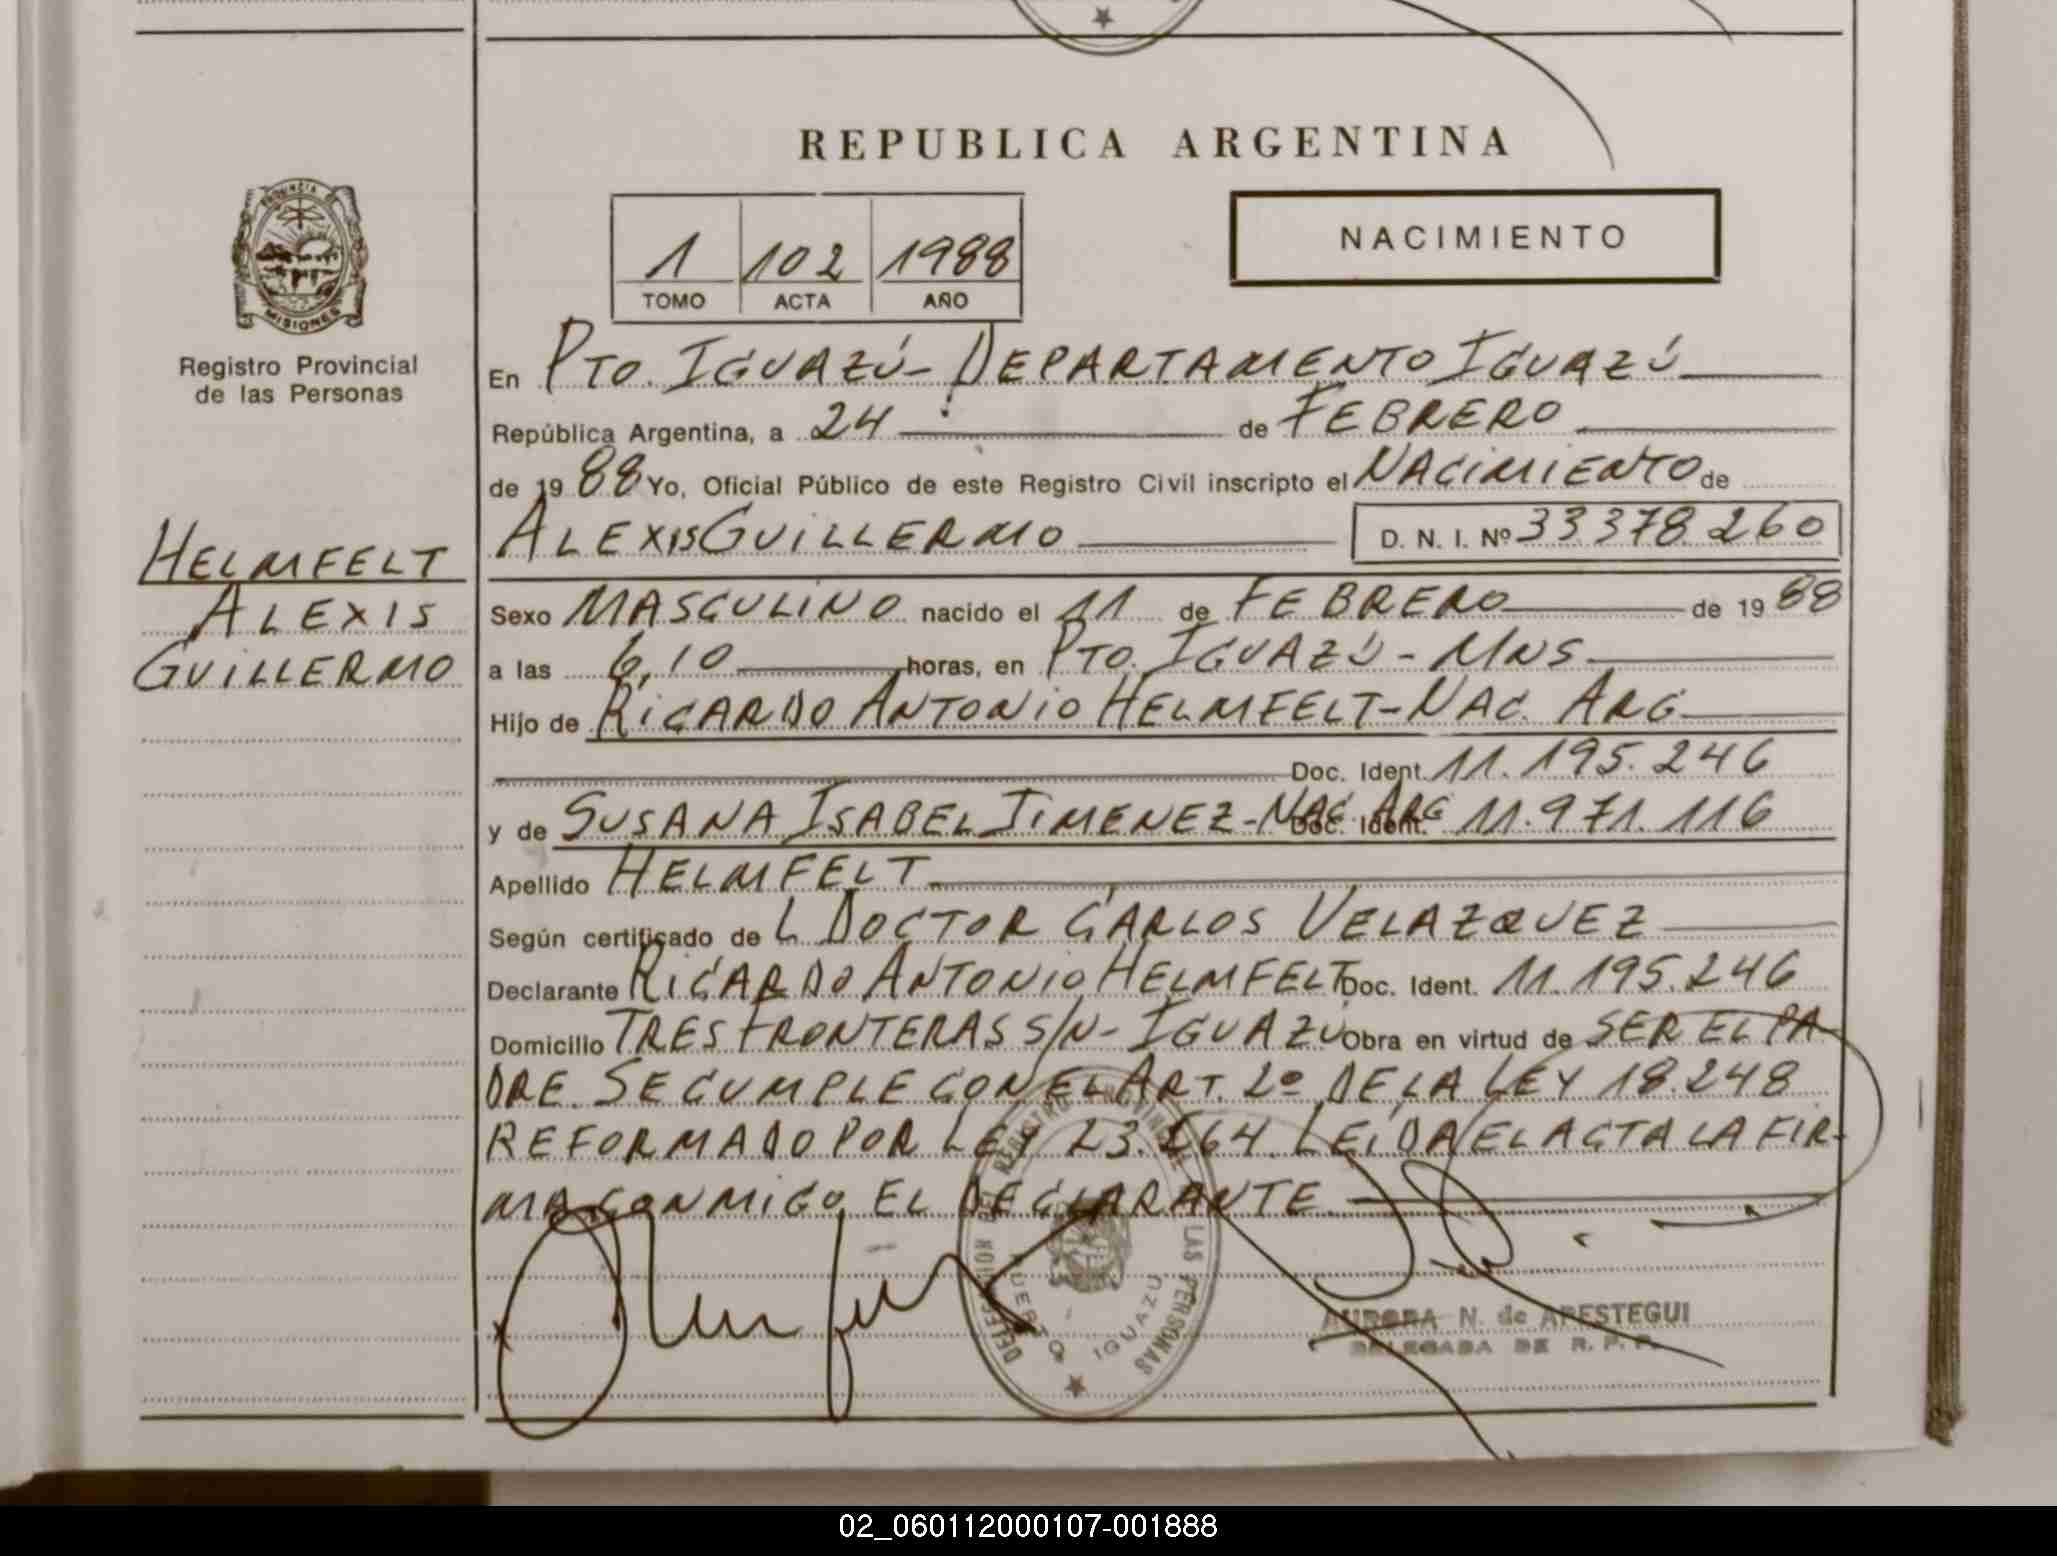 REPUBLICA ARGENTINA
PROVINCIA DE
MISIONES
Registro Provincial
de las Personas
1 102 1988
TOMO ACTA AÑO
NACIMIENTO
HELMFELT
ALEXIS
GUILLERMO
En PTO. IGUAZÚ - DEPARTAMENTO IGUAZÚ
República Argentina, a 24 de FEBRERO
de 1988 Yo, Oficial Público de este Registro Civil inscripto el NACIMIENTO de
ALEXIS GUILLERMO D. N. I. Nº 33378.260
Sexo MASCULINO nacido el 11 de FEBRERO de 1988
a las 6,10 horas, en PTO. IGUAZÚ - MNS
Hijo de RICARDO ANTONIO HELMFELT - NAC. ARG
Doc. Ident. 11.195.246
y de SUSANA ISABEL JIMENEZ - NAC. ARG Doc. Ident. 11.971.116
Apellido HELMFELT
Según certificado de L DOCTOR CARLOS VELAZQUEZ
Declarante RICARDO ANTONIO HELMFELT Doc. Ident. 11.195.246
Domicilio TRES FRONTERAS S/N - IGUAZÚ Obra en virtud de SER EL PA
DRE. SE CUMPLE CON EL ART. 2º DE LA LEY 18.248
REFORMADO POR LEY 23.264. LEÍDA EL ACTA LA FIR-
MA CONMIGO EL DECLARANTE.
DELEGACION DEL REGISTRO PROVINCIAL DE LAS PERSONAS
PUERTO IGUAZU
AURORA N. de APESTEGUI
DELEGADA DE R. P. P.
02_060112000107-001888